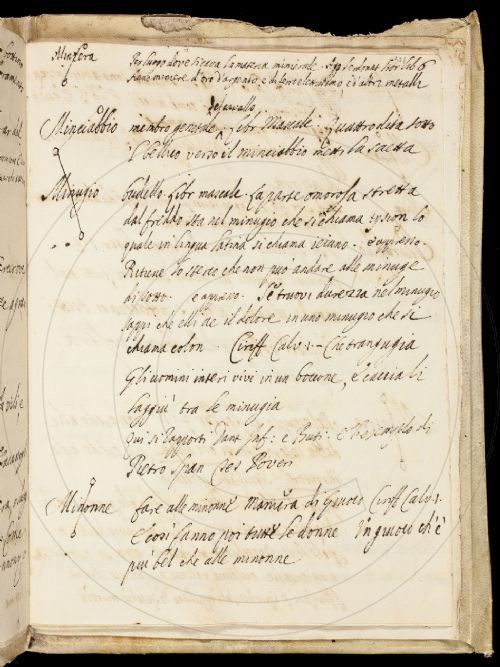 Miniera Per luogo dove si cava la materia minerale
di cavallo
Minciabbio membro genitale, Libr Mascale. Quattro dita sotto
'l bellico verso il minciabbio metti la saetta
Minugio budello. Libr mascale. La parte omorosa stretta
dal freddo sta nel minugio che si chiama lo
quale in lingua latina si chiama ieiuno. e appresso.
Ritiene lo sterco che non può andare alle minuge
di sotto. e appresso. Se truovi durezza nel minugio
sappi che elli ae il dolore in uno minugio che si
chiama colon. Ciriff. Calv. 1. Che trangugia
Gli uomini interi vivi in un boccone, E caccia li
laggiù tra le minugia
Qui si rapporti Dant. Inf: e But: e l'esemplo di
Pietro Span Tes Poveri
Minonne fare alle minonne Maniera di Giuoco Ciriff Calv. 1.
E così fanno poi tutte le donne Un giuoco ch'è
più bel che alle minonne